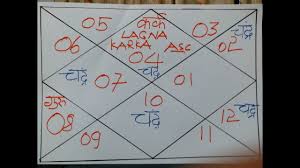 05 कर्क 03
LAGNA
06 KARKA ASC 02
चंद्र 04 चंद्र
07 01
गुरु 10 चंद्र
08 चंद्र 12
09 11